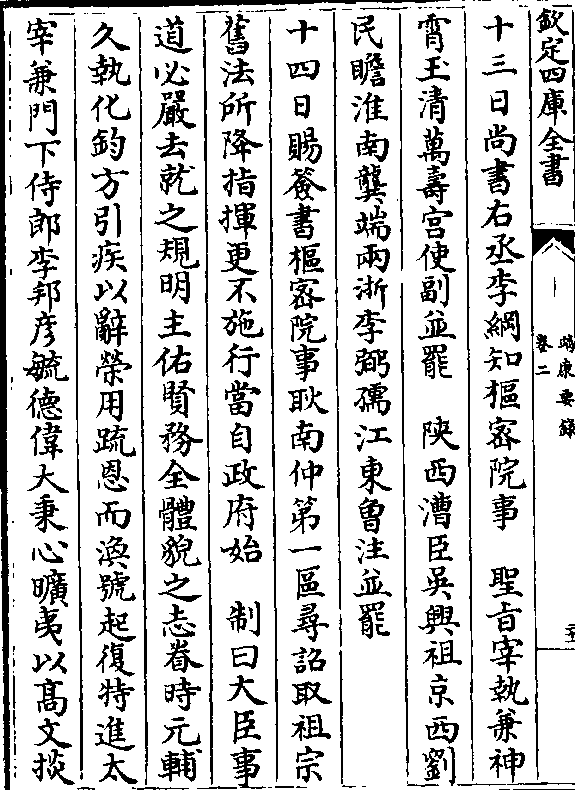 欽定四庫全書
靖康要錄
卷二
十三日尚書右丞李綱知樞密院事　聖旨宰執兼神
霄玉清萬壽宮使副並罷　陝西漕臣吳興祖京西劉
民瞻淮南龔端兩浙李弼孺江東曾注並罷
十四日賜簽書樞密院事耿南仲第一區尋詔取祖宗
舊法所降指揮更不施行當自政府始　制曰大臣事
道必嚴去就之規明主佑賢務全體貌之志眷時元輔
久執化鈞方引疾以辭榮用疏恩而渙號起復特進太
宰兼門下侍郎李邦彥毓德偉大秉心曠夷以高文掞